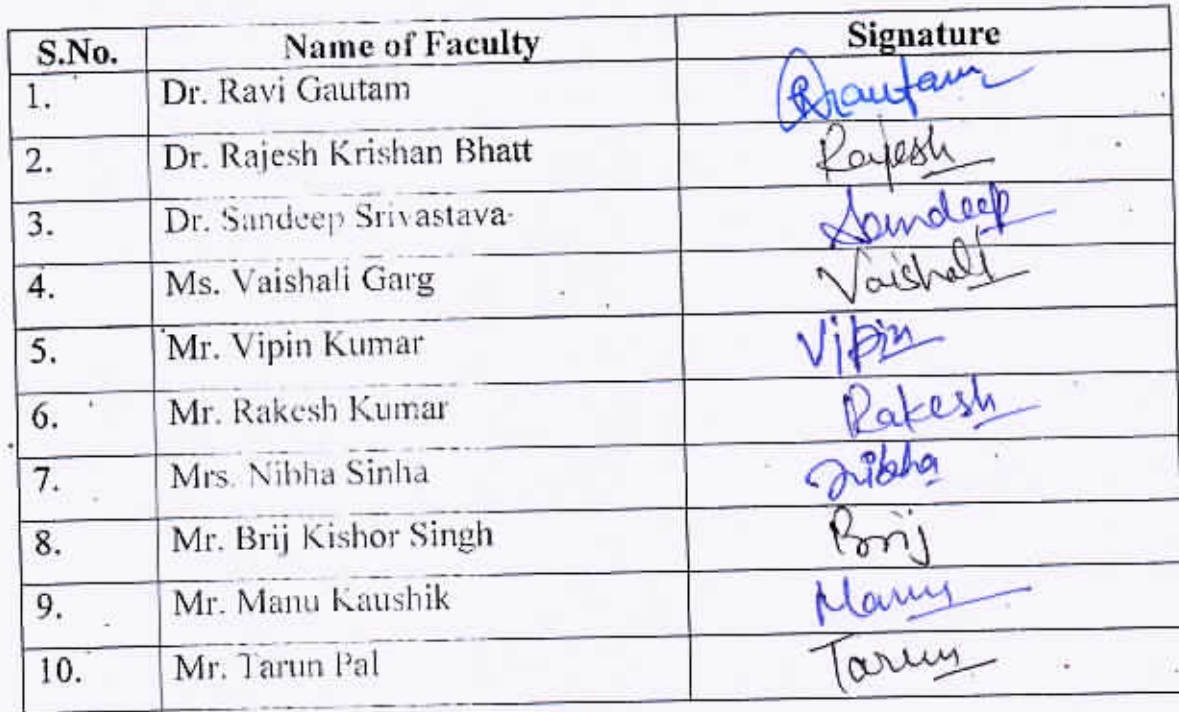 S.No. Name of Faculty Signature
1. Dr. Ravi Gautam Rgautam
2. Dr. Rajesh Krishan Bhatt Rajesh
3. Dr. Sandeep Srivastava Sandeep
4. Ms. Vaishali Garg Vaishali
5. Mr. Vipin Kumar Vipin
6. Mr. Rakesh Kumar Rakesh
7. Mrs. Nibha Sinha Nibha
8. Mr. Brij Kishor Singh Brij
9. Mr. Manu Kaushik Manu
10. Mr. Tarun Pal Tarun